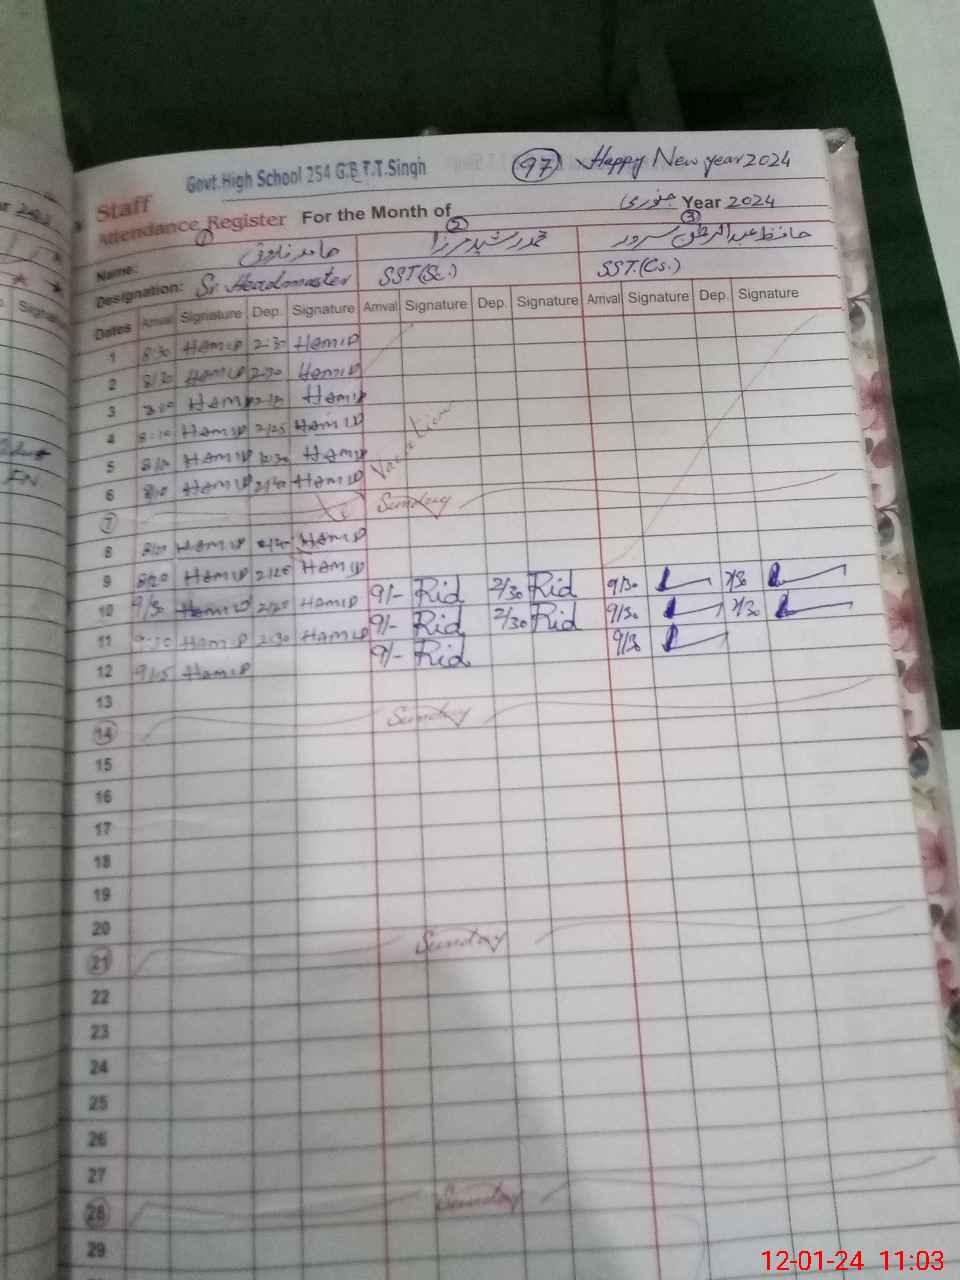 Govt.High School 254 G.B T.T.Singh
97 Happy New year 2024
Staff
Attendance Register For the Month of جنوری Year 2024
1 2 3
Name: حامد فاروق محمد رشید مرزا حافظ عبدالرحمٰن سرور
Designation: Sr. Headmaster SST(Sc.) SST.(Cs.)
Dates Arrival Signature Dep. Signature Arrival Signature Dep. Signature Arrival Signature Dep. Signature
1 8:30 HAMID 2:30 HAMID
2 HAMID HAMID
3 HAMID HAMID
4 8:10 HAMID 2/25 HAMID
5 HAMID HAMID
6 HAMID 2/40 HAMID
Vacation
7 Sunday
8 HAMID HAMID
9 8/20 HAMID HAMID
10 9/30 HAMID 2/20 HAMID 9/- Rid 2/30 Rid 9/30 2/30
11 HAMID 2:30 HAMID 9/- Rid 2/30 Rid 9/30 2/30
12 9/15 HAMID 9/- Rid 9/30
13
14 Sunday
15
16
17
18
19
20
21 Sunday
22
23
24
25
26
27
28 Sunday
29
12-01-24 11:03